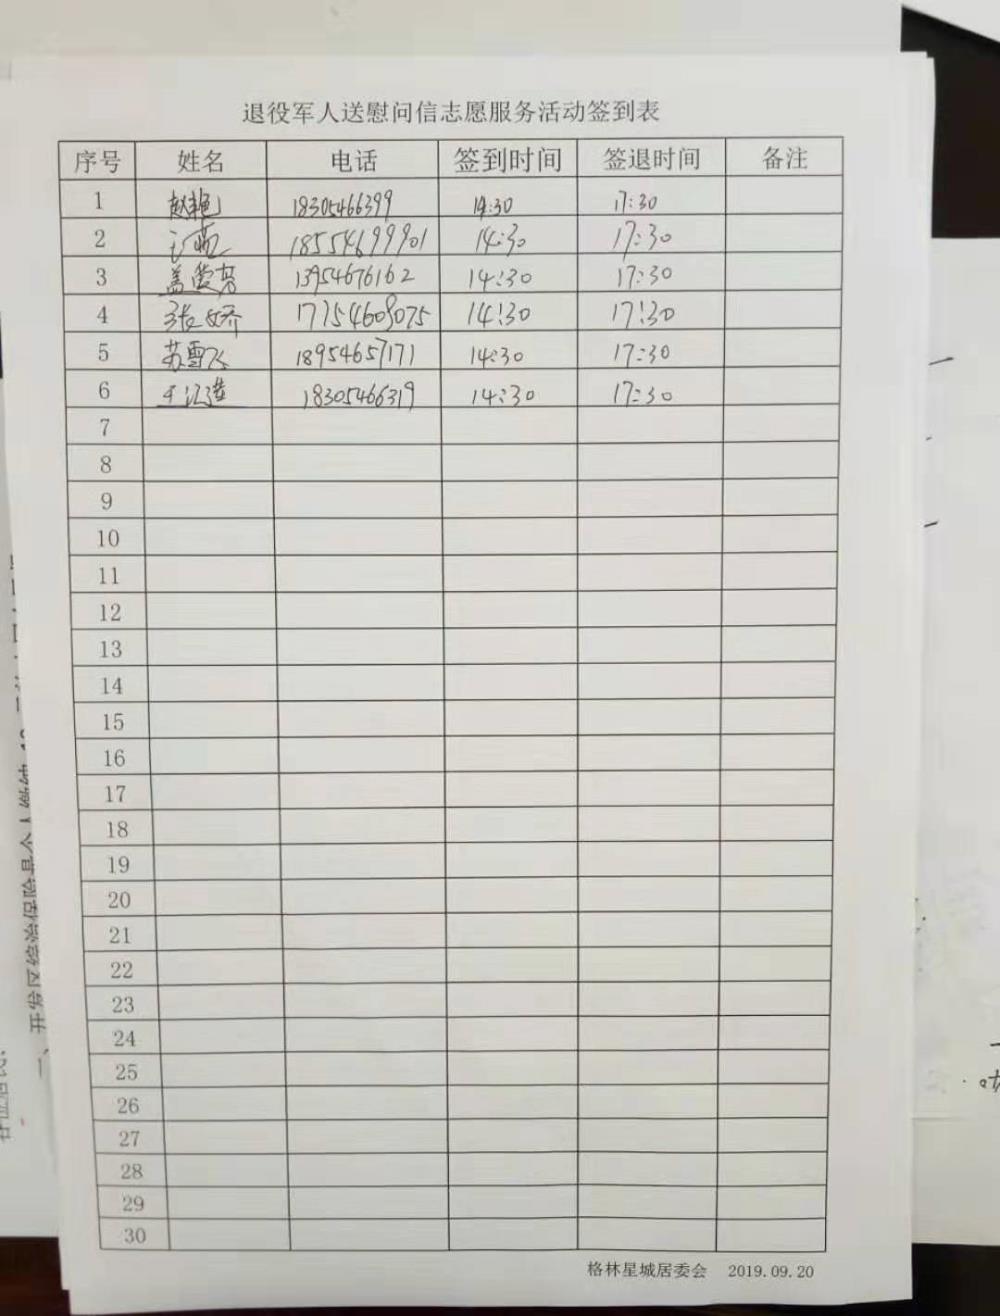 退役军人送慰问信志愿服务活动签到表
序号 姓名 电话 签到时间 签退时间 备注
1 赵艳 18305466399 14:30 17:30
2 18554699901 14:30 17:30
3 盖俊芳 13954676162 14:30 17:30
4 张娇 17754608075 14:30 17:30
5 苏雪飞 18954657171 14:30 17:30
6 18305466319 14:30 17:30
7
8
9
10
11
12
13
14
15
16
17
18
19
20
21
22
23
24
25
26
27
28
29
30
格林星城居委会 2019.09.20